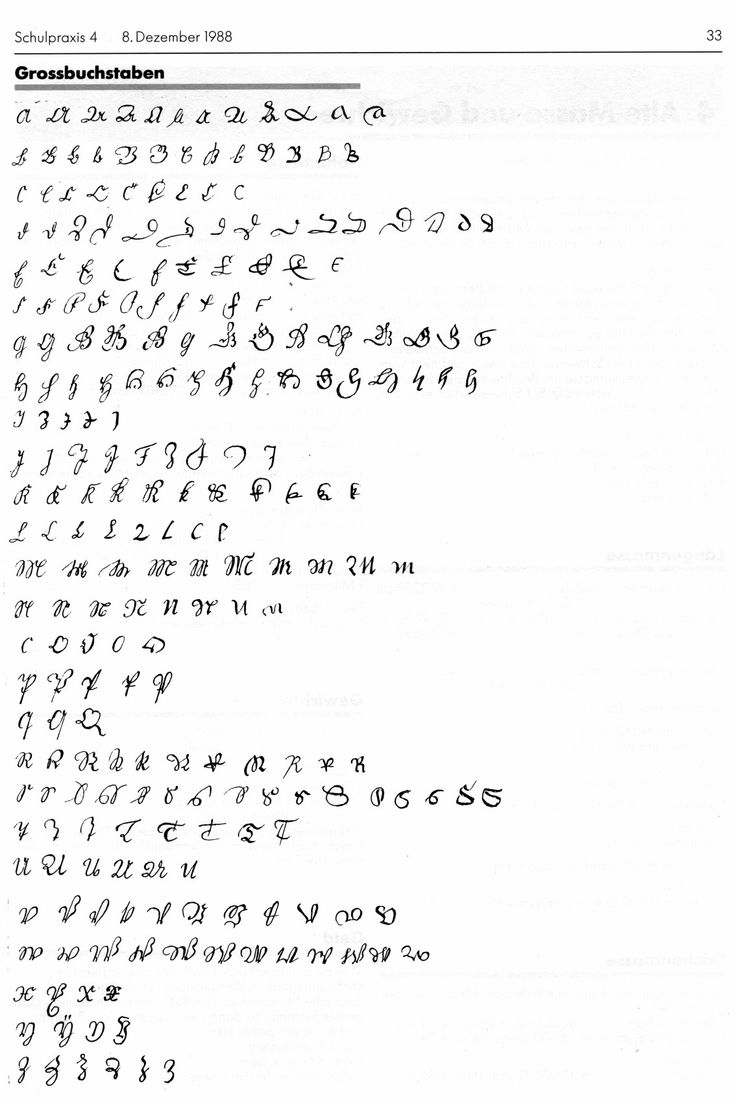 Schulpraxis 4 8. Dezember 1988 33
Grossbuchstaben
A A A A A A A A A A A A
B B B B B B B B B B B B B
C C C C C C C C C
D D D D D D D D D D D D D D D
E E E E E E E E E E
F F F F F F F F F F
G G G G G G G G G G G G G G
H H H H H H H H H H H H H H H H
I I I I I
J J J J J J J J J
K K K K K K K K K K K
L L L L L L L L
M M M M M M M M M M
N N N N N N N N
O O O O O
P P P P P
Q Q Q
R R R R R R R R R R R
S S S S S S S S S S S S S S S S
T T T T T T T T
U U U U U U
V V V V V V V V V V V
W W W W W W W W W W W W
X X X X
Y Y Y Y
Z Z Z Z Z Z